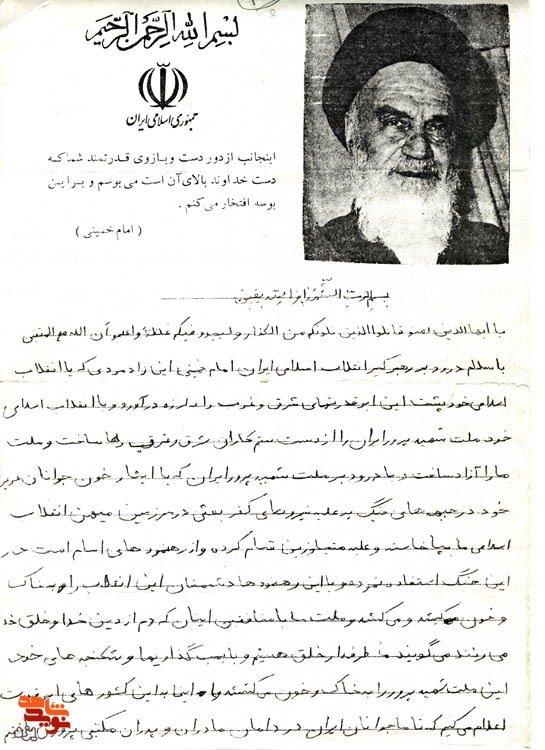 بسم الله الرحمن الرحیم
جمهوری اسلامی ایران
اینجانب از دور دست و بازوی قدرتمند شما که
دست خداوند بالای آن است می بوسم و بر این
بوسه افتخار می کنم .
( امام خمینی )
بسم رب الشهدا و
یا ایها الذین امنو قاتلوا الذین یلونکم من الکفار ولیجدو فیکم غلظة واعلمو آن الله مع المتقین
با سلام درود بر رهبر کبیر انقلاب اسلامی ایران امام خمینی این راد مردی که با انقلاب
اسلامی خود پشت این ابر قدرتهای شرق و غرب را به لرزه درآورد و با انقلاب اسلامی
خود ملت شهید پرور ایران را از دست ستم کاران شرق و غرب رها ساخت و ملت
ما را آزاد ساخت و با درود بر ملت شهید پرور ایران که با ایثار خون جوانان عزیز
خود در جبهه های جنگ بر علیه نیروهای کفر بعثی در سرزمین میهن انقلاب
اسلامی ما بپا خاسته و علیه متجاوزین قیام کرده و از رهنمود های امام امت در
این جنگ استفاده نموده و با این رهنمود ها دشمنان این انقلاب را به خاک
و خون میکشد و می کشند و ملت ما با منافقین اینان که دم از دین خدا و خلق خدا
می زنند می گویند ما طرفدار خلق هستیم و با بمب گذاریها و شکنجه های خود
این ملت شهید پرور را به خاک و خون می کشند و ما اینها به این کشور های ابر قدرت
اعلام می کنیم که تا ما جوانان ایران در دامان مادران و پدران مکتبی پرورش
نوید شاهد